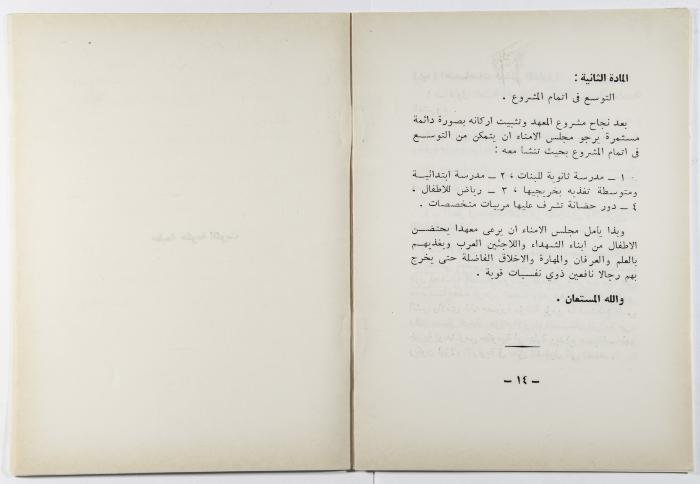 المادة الثانية :
التوسع في اتمام المشروع .
بعد نجاح مشروع المعهد وتثبيت اركانه بصورة دائمة
مستمرة يرجو مجلس الامناء ان يتمكن من التوسع
في اتمام المشروع بحيث تنشأ معه :
١ – مدرسة ثانوية للبنات ، ٢ – مدرسة ابتدائية
ومتوسطة تغذيه بخريجيها ، ٣ – رياض للاطفال ،
٤ – دور حضانة تشرف عليها مربيات متخصصات .
وبذا يأمل مجلس الامناء ان يرعى معهدا يحتضن
الاطفال من ابناء الشهداء واللاجئين العرب ويغذيهم
بالعلم والعرفان والمهارة والاخلاق الفاضلة حتى يخرج
بهم رجالا نافعين ذوي نفسيات قوية .
والله المستعان .
– ١٤ –